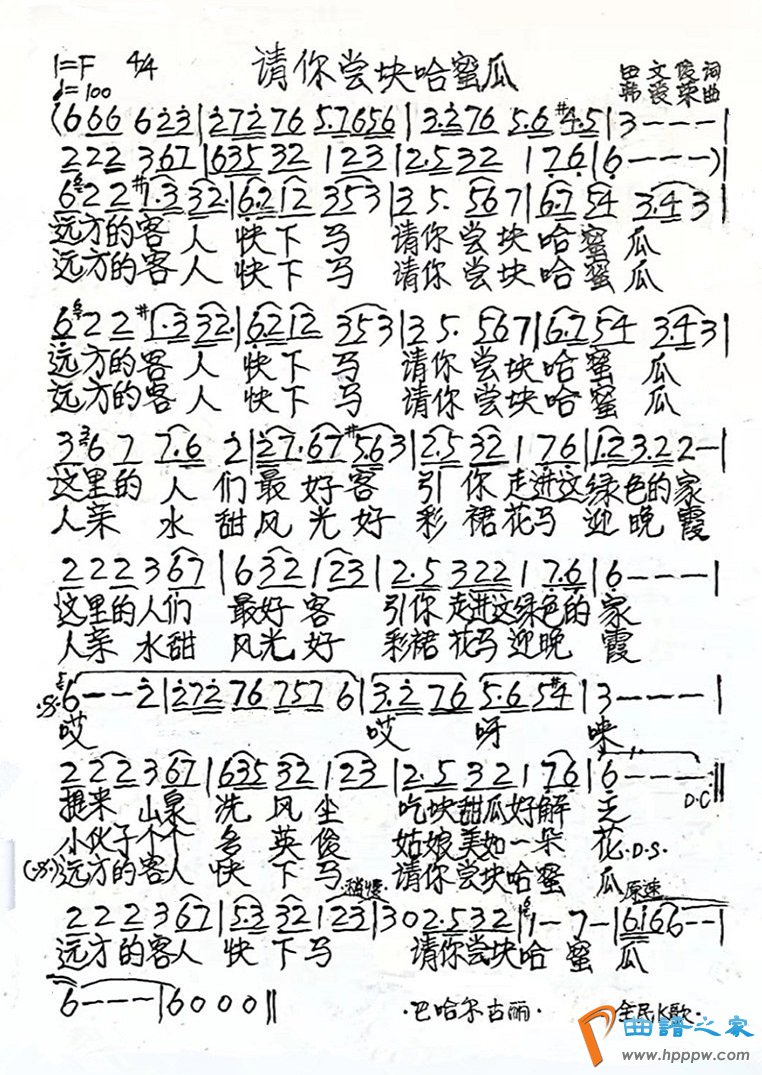 1=F 4/4 请你尝块哈蜜瓜 田文俊词
♩=100 韩爱荣曲
(6 66 6 2 3 | 2 7 2 7 6 5·7 6 5 6 | 3·2 7 6 5·6 #4·5 | 3 - - - |
2 2 2 3 6 7 | 6 3 5 3 2 1 2 3 | 2·5 3 2 1 7 6 | 6 - - - ) |
6 2 2 #1·3 3 2· | 6·2 1 2 3 5 3 | 3 5· 5 6 7 | 6·7 5 4 3·4 3 |
远方的客人 快下马 请你尝块哈蜜瓜
远方的客人 快下马 请你尝块哈蜜瓜
6 2 2 #1·3 3 2· | 6 2 1 2 3 5 3 | 3 5· 5 6 7 | 6·7 5 4 3·4 3 |
远方的客人 快下马 请你尝块哈蜜瓜
远方的客人 快下马 请你尝块哈蜜瓜
3 6 7 7·6 2 | 2 7·6 7 #5 6 3 | 2·5 3 2 1 7 6 | 1·2 3·2 2 - |
这里的人们最好客 引你走进这绿色的家
人亲水甜风光好 彩裙花马迎晚霞
2 2 2 3 6 7 | 6 3 2 1 2 3 | 2·5 3 2 2 1 7·6 | 6 - - - |
这里的人们 最好客 引你走进这绿色的家
人亲水甜 风光好 彩裙花马迎晚霞
6 - - 2 | 2 7 2 7 6 7 5 7 6 | 3·2 7 6 5·6 5 #4 | 3 - - - |
哎 哎 呀 咪
2 2 2 3 6 7 | 6 3 5 3 2 1 2 3 | 2·5 3 2 1 7 6 | 6 - - - ||
D.C
提来山泉洗风尘 吃块甜瓜好解乏
小伙子个个多英俊 姑娘美如一朵花 D.S.
远方的客人快下马 请你尝块哈蜜瓜
稍慢 原速
2 2 2 3 6 7 | 5·3 3 2 1 2 3 | 3 0 2·5 3 2 | 1 - 7 - | 6 1 6 6 - - |
远方的客人快下马 请你尝块哈蜜瓜
6 - - - | 6 0 0 0 ||
·巴哈尔古丽· 全民K歌
曲谱之家
www.hpppw.com